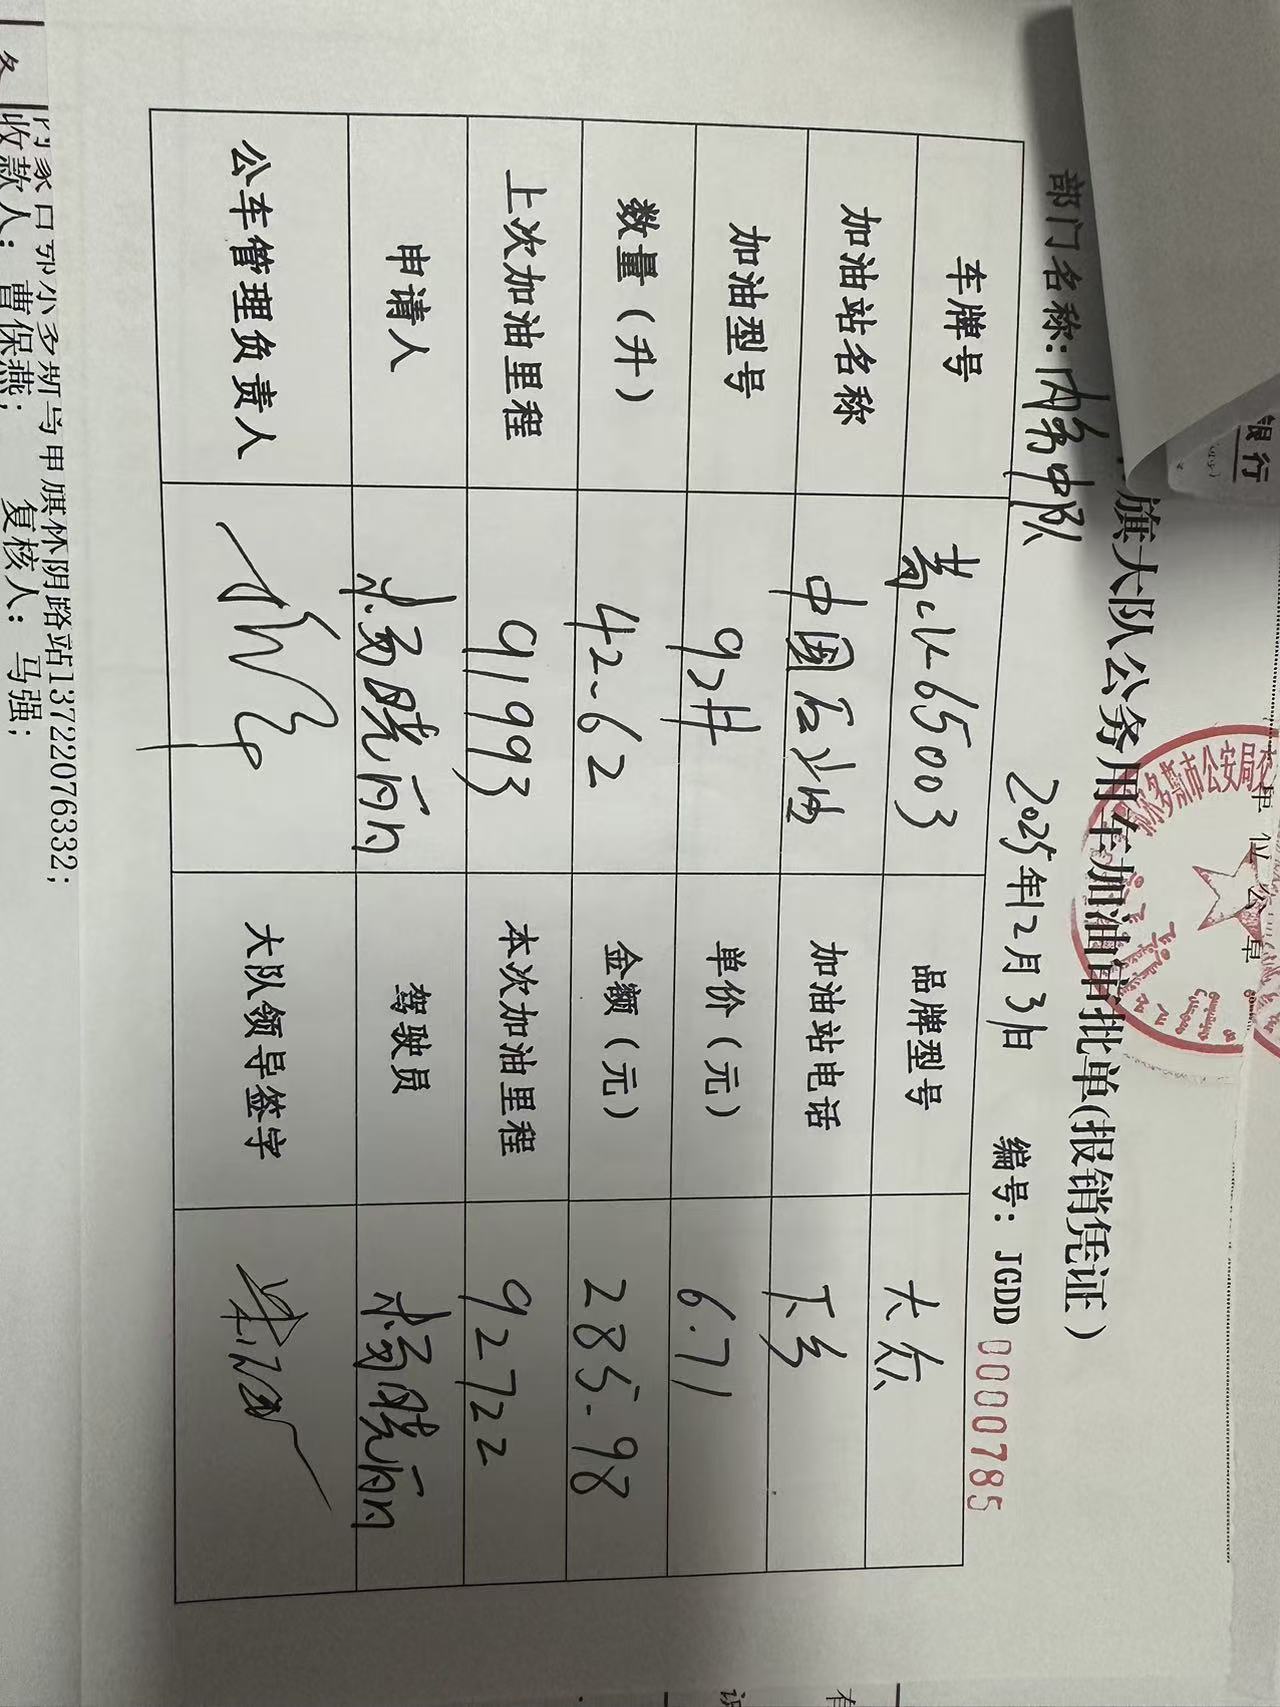 旗大队公务用车加油审批单(报销凭证)
部门名称:内务中队 2025年12月31日 编号: JGDD 0000785
车牌号 蒙LV65003 品牌型号 大众
加油站名称 中国石油 加油站电话 下乡
加油型号 92# 单价(元) 6.71
数量(升) 42.62 金额(元) 285.98
上次加油里程 91993 本次加油里程 92722
申请人 杨晓雨 驾驶员 杨晓雨
公车管理负责人 大队领导签字
旗怀阴路站13722076332;
收款人: 曹保燕; 复核人: 马强;
银行
单位公章
多斯市公安局交